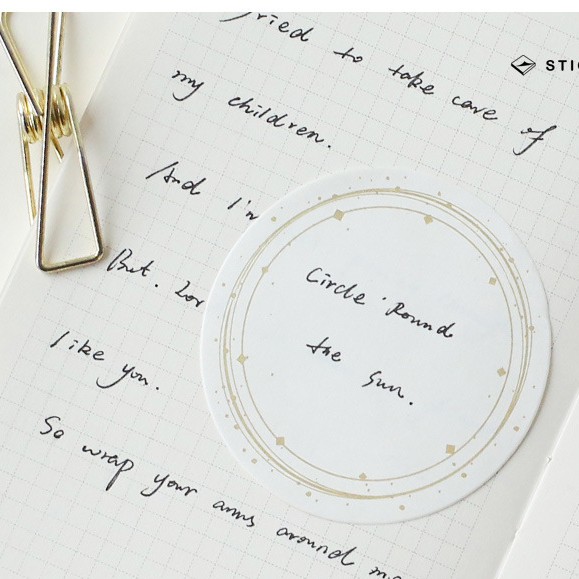 tried to take care of
my children.
And I'm
But. Lor
like you.
So wrap your arms around me
Circle 'Round
the Sun.
STI